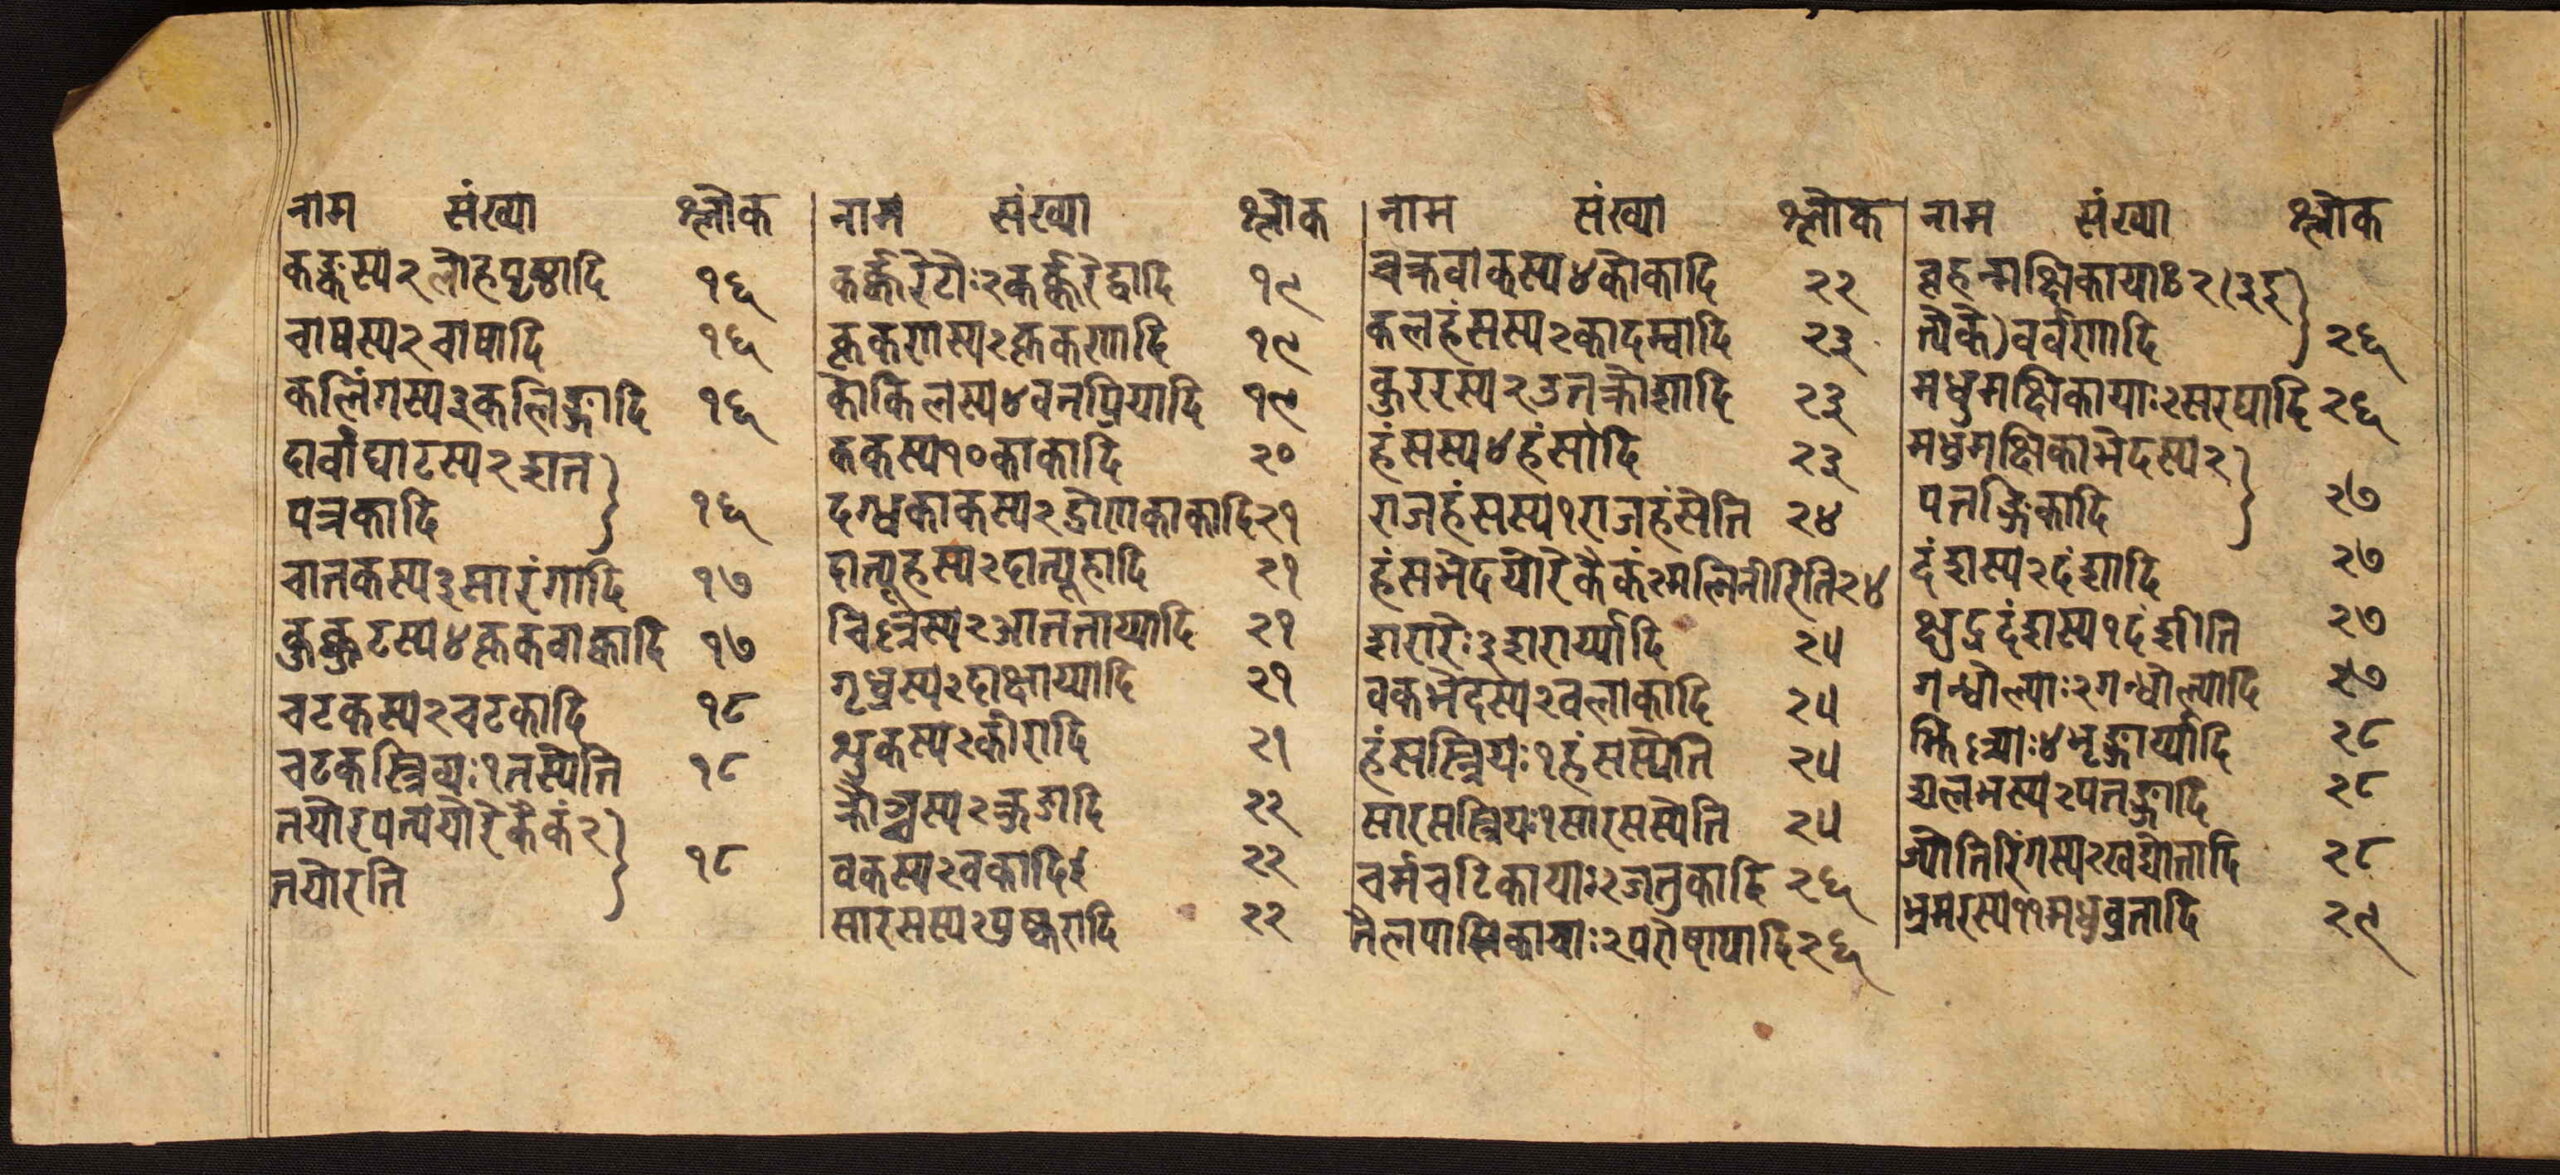 नाम संख्या श्लोक
कङ्कस्य२लोहपृष्ठादि १६
चाषस्य२चाषादि १६
कलिंगस्य३कलिङ्गादि १६
दार्वाघाटस्य२शत
पत्रकादि १६
चातकस्य३सारंगादि १७
कुक्कुटस्य४कृकवाक्वादि १७
चटकस्य२चटकादि १८
चटकस्त्रियः१तस्येति १८
तयोरपत्ययोरेकैकं२
तयोरति १८
नाम संख्या श्लोक
कर्क्करेटोः२कर्क्करेट्वादि १९
कृकणस्य२कृकणादि १९
कोकिलस्य४वनप्रियादि १९
ककस्य१०काकादि २०
दग्धकाकस्य२द्रोणकाकादि२१
दात्यूहस्य२दात्यूहादि २१
२आतताय्यादि २१
गृध्रस्य२दाक्षाय्यादि २१
शुकस्य२कीरादि २१
क्रौञ्चस्य२क्रुङादि २२
वकस्य२वकादि २२
सारसस्य२पुष्करादि २२
नाम संख्या श्लोक
चक्रवाकस्य४कोकादि २२
कलहंसस्य२कादम्बादि २३
कुररस्य२उतक्रोशादि २३
हंसस्य४हंसादि २३
राजहंसस्य१राजहंसेति २४
हंसभेदयोरेकैकं२मलिनीरिति२४
शरारेः३शरार्य्यादि २५
वकभेदस्य२वलाकादि २५
हंसस्त्रियः१हंसस्येति २५
सारसस्त्रियः१सारसस्येति २५
चर्मचटिकायाः२जतुकादि २६
तैलपायिकायाः२परोष्णादि२६
नाम संख्या श्लोक
वृहन्मक्षिकायाः२।३इ
त्येके)वर्वणादि २६
मधुमक्षिकायाः२सरघादि २६
मधुमक्षिकाभेदस्य२
पतङ्गिकादि २७
दंशस्य२दंशादि २७
क्षुद्रदंशस्य१दंशीति २७
गन्धोल्याः२गन्धोल्यादि २७
४भृङ्गार्य्यादि २८
शलभस्य२पतङ्गादि २८
ज्योतिरिंगस्य२खद्योतादि २८
भ्रमरस्य११मधुव्रतादि २९